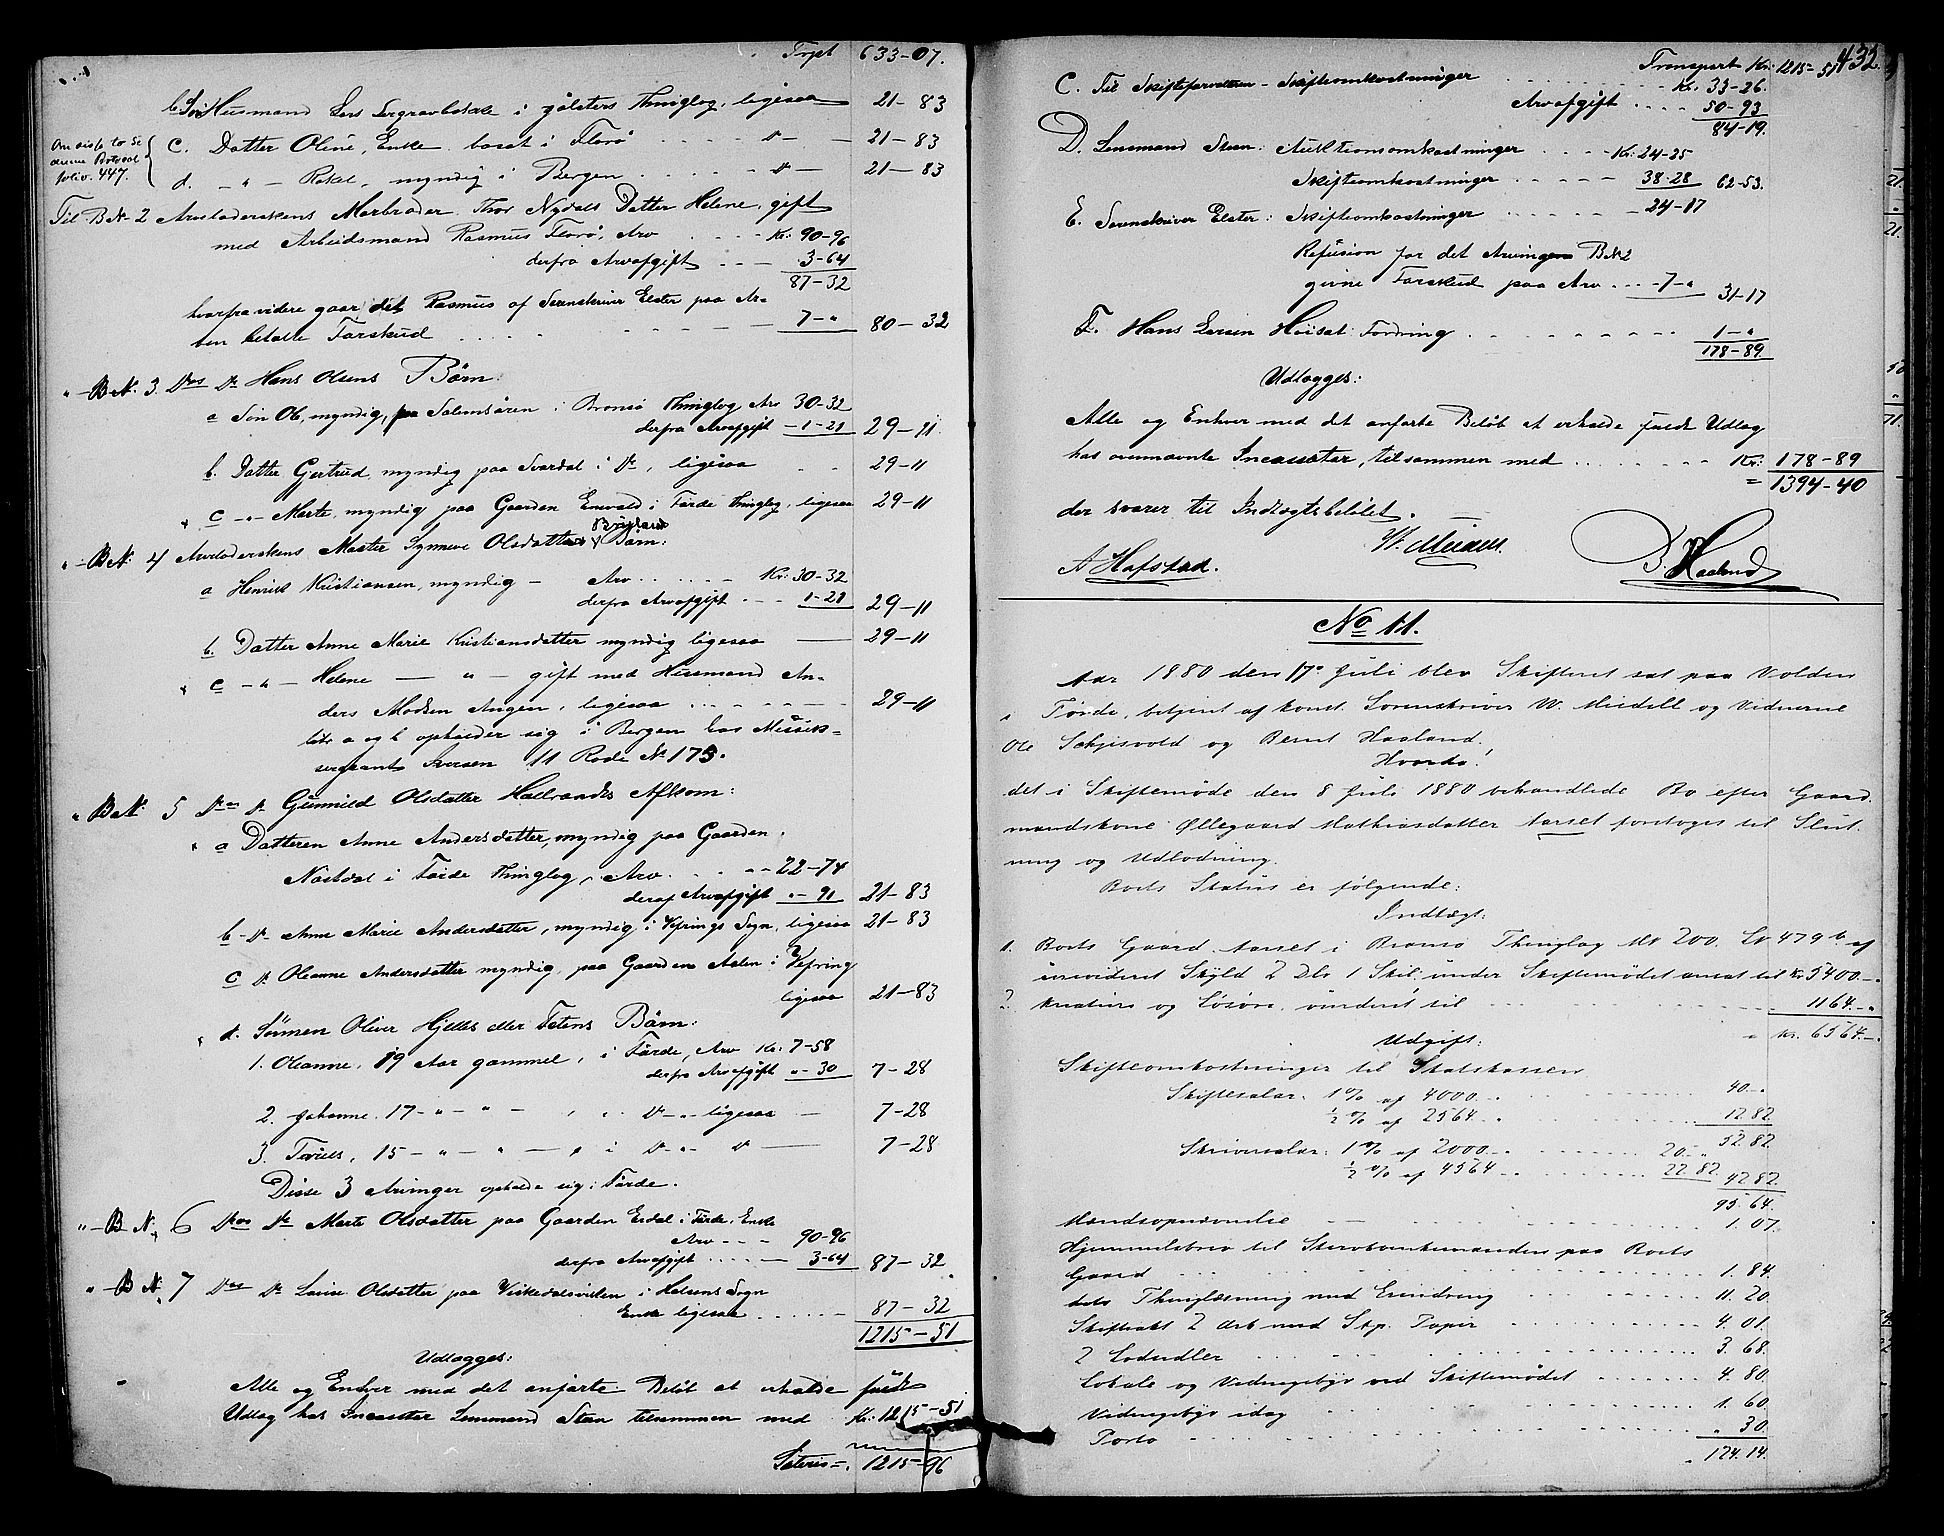 Trpt 633-07.
b. Søn Husmand Lars Sergravbotale i Jølsters Thinglag, ligesaa 21-83
Om sidste to se denne Protocol foliv. 447.
C. Datter Oline, Enke, bosat i Florø .... D° — 21-83
d. -"- Rakel, myndig i Bergen ..... D° — 21-83
Til B N° 2 Arveladerskens Morbroder Thor Nydals Datter Helene, gift
med Arbeidsmand Rasmus Florø, Arv .... Kr: 90-96
derfra Arvafgift ... 3-64
87-32
hvorfra videre gaar det Rasmus af Sorenskriver Elster paa Ar-
ven betalte Forskud .... 7-" 80-32
"- B N° 3. D°s D° Hans Olsens Børn:
a Søn Ole, myndig, paa Solemsøren i Bremsø Thinglag Arv 30-32
derfra Arvafgift -1-21 29-11
b. Datter Gjertrud, myndig paa Svardal i D°, ligesaa .. 29-11
c -"- Marte, myndig paa Gaarden Envald i Førde Thinglag, ligesaa 29-11
"- B N° 4 Arveladerskens Moster Synneve Olsdatters Børn:
a Henrik Kristiansen, myndig - Arv ..... Kr: 30-32
derfra Arvafgift ... 1-21 29-11
b. Datter Anne Marie Kristiansdatter myndig ligesaa — 29-11
c -"- Helene — " - gift med Husmand An-
ders Madsen Angen, ligesaa ...... 29-11
litr a og b opholder sig i Bergen hos Musik-
sergeant Iversen 11 Rode N° 175.
" B N° 5 D°s D° Gunnild Olsdatter Hallrands Afkom:
a Datteren Anne Andersdatter, myndig paa Gaarden
Nastdal i Førde Thinglag, Arv .... 22-74
deraf Arvafgift "-91 21-83
b-D° Anne Marie Andersdatter, myndig i Vefrings Sogn, ligesaa 21-83
c D° Oleanne Andersdatter myndig, paa Gaarden Aalen i Vefring
ligesaa 21-83
d. Sønnen Oliver Hjelles eller Tetens Børn:
1. Oleanne, 19 Aar gammel, i Førde, Arv Kr: 7-58
derfra Arvafgift "-30 7-28
2. Johanne 17-"-"-, , D°-"-ligesaa — 7-28
3. , 15-"-"-, i D°-"-D° — 7-28
Disse 3 Arvinger opholde sig i Førde.
"- B N° 6 D°s D° Marte Olsdatter paa Gaarden Erdal i Førde, Enke
Arv ... 90-96
derfra Arvafgift .... 3-64 87-32
"- B N° 7 D°s D° Lovise Olsdatter paa Viskedalsvilen i Holsens Sogn
Enke ligesaa ..... 87-32
1215-51
Udlægges:
Alle og Enhver med det anførte Beløb at erholde fuldt
Udlæg hos Incassator Lensmand Steen tilsammen med Kr: 1215-51
Lateris =. 1215-96
432
Transport Kr: 1215-51
C. Til Skifteforvalteren - Skifteomkostninger ...... Kr. 33-26.
Arvafgift .... 50-93
84-19.
D. Lensmand Steen: Auktionsomkostninger .... Kr: 24-25
Skifteomkostninger ..... 38-28 62-53.
E. Sorenskriver Elster: Skifteomkostninger ...... 24-17
Refusion for det Arvingen B N° 2
givne Forskud paa Arv .... 7-" 31-17
F. Hans Larsen Høisæt: Fordring ........ 1-"
178-89
Udlægges:
Alle og Enhver med det anførte Beløb at erholde fuldt Udlæg
hos ovennævnte Incassator, tilsammen med ....... Kr: 178-89
= 1394-40
der svarer til Indtægtsbeløbet.
W. Meidell.
A Hafstad. B. Haaland
No 11.
Aar 1880 den 17° Juli blev Skifteret sat paa Volden
i Førde, betjent af konst. Sorenskriver W. Meidell og Vidnerne
Ole Schjesvold og Bernt Haaland.
Hvorda!
det i Skiftemøde den 8 Juli 1880 behandlede Bo efter Gaard
mandskone Øllegaard Mathiasdatter Aarset foretoges til Slut-
ning og Udlodning.
Boets Status er følgende:
Indtægt:
1. Boets Gaard Aarset i Bremsø Thinglag M 200. Lv 479 b af
urevideret Skyld 2 Dlr 1 Skil. under Skiftemødet ansat til Kr. 5400.-"
2. Kreature og Løsøre, vurderet til .... 1164.-"
" Kr. 6564.-"
Udgift:
Skifteomkostninger til Statskassen
Skiftesalær. 1 % af 4000.-" .... 40.-"
½ % af 2564.-" .... 12.82
52.82
Skriversalær: 1 % af 2000.-" .... 20.-"
½ % af 4564.-" .... 22.82 42.82
95.64.
Mandsopnævnelse — ..... 1.07.
Hjemmelsbrev til Stervboenkemanden paa Boets
Gaard ..... 1.84.
dets Thinglæsning med Erindring ..... 11.20.
Skifteakt 2 Ark med Stp. Papir ..... 4.01.
2 Lodsedler ..... 3.68.
Lokale og Vidnegebyr ved Skiftemødet ..... 4.80.
Vidnegebyr idag ..... 1.60.
Porto ..... ". 30.
" 124.14.